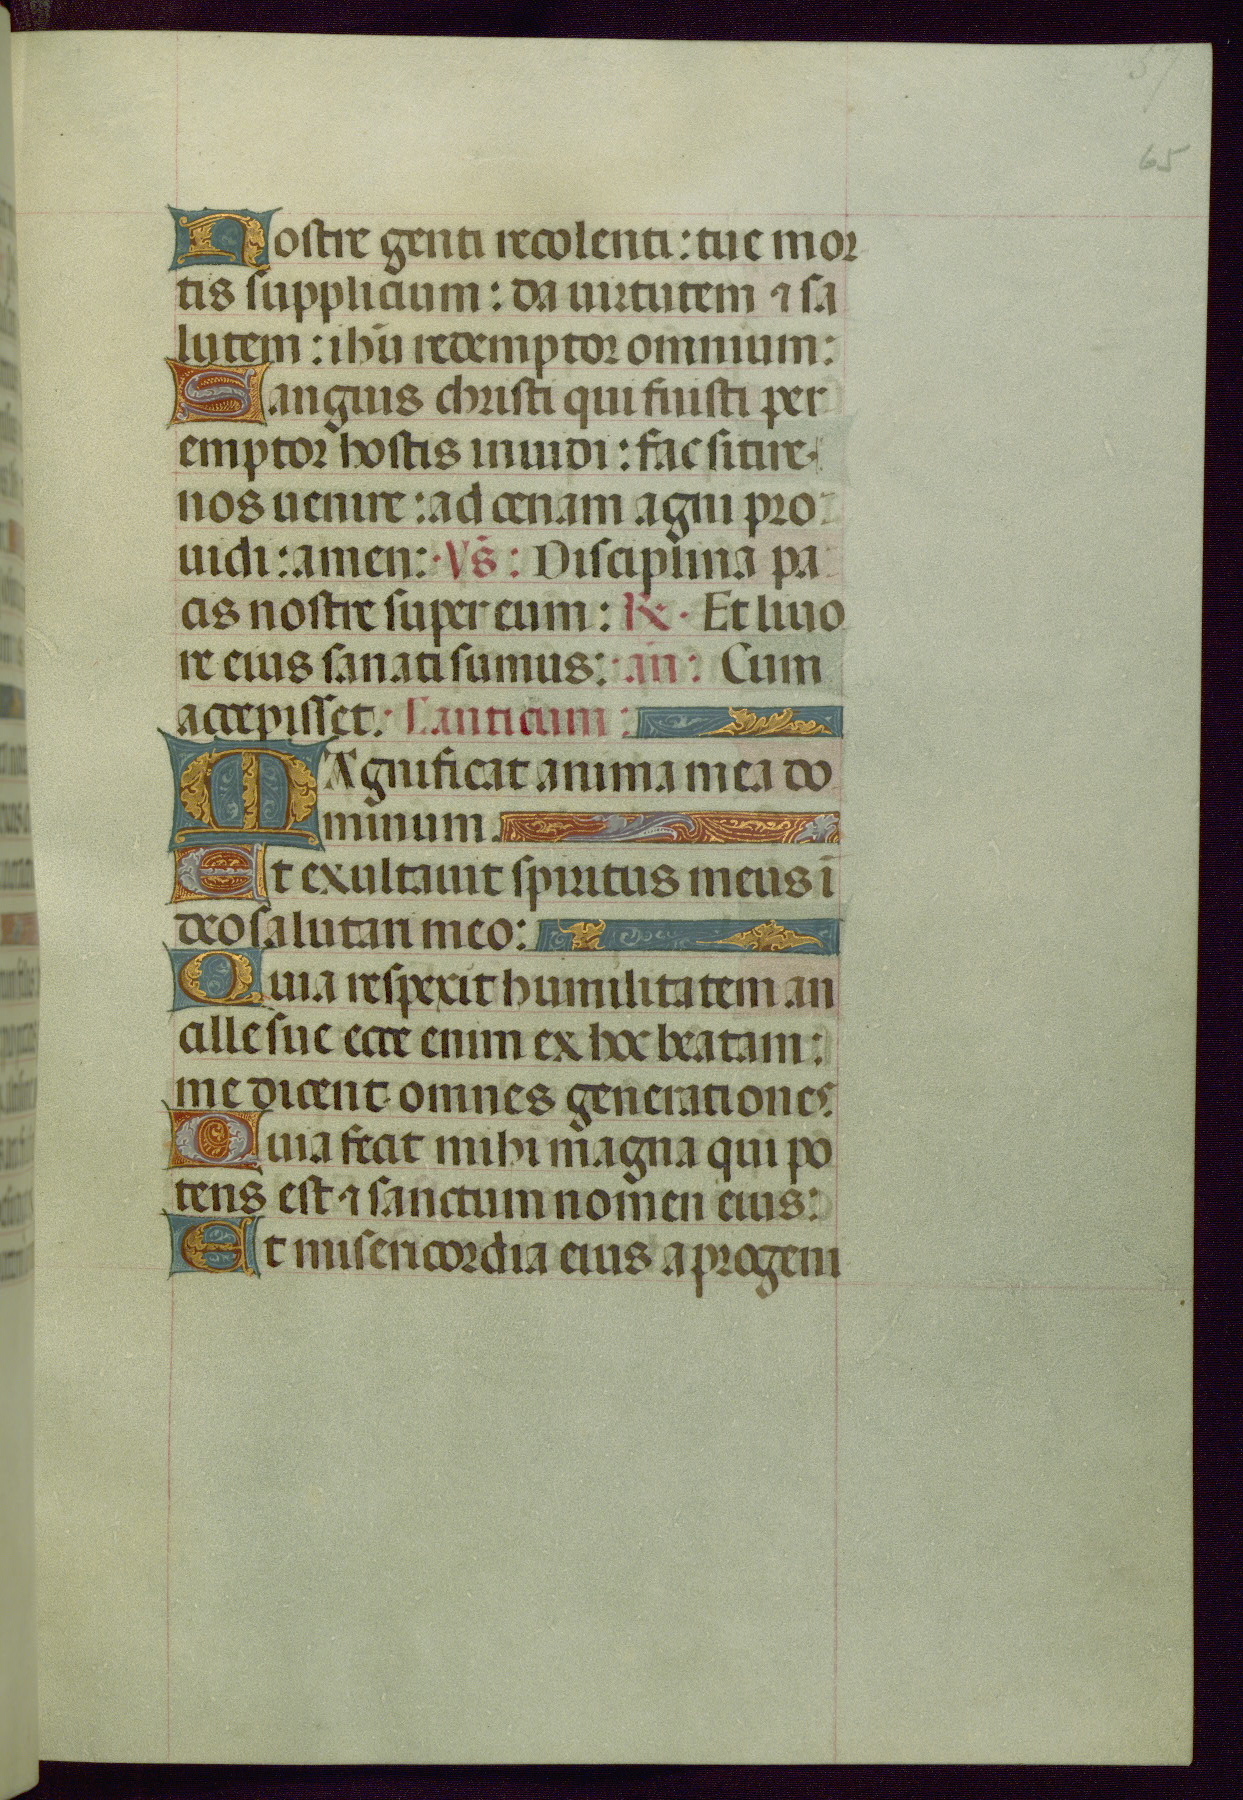 57
65
Nostre genti recolenti: tue mor
tis supplicium: da uirtutem ⁊ sa
lutem: ihū redemptor omnium:
Sanguis christi qui fuisti per
emptor hostis inuidi: fac sitire
nos uenire: ad cenam agni pro
uidi: amen: Vs̄: Disciplina pa
cis nostre super eum: ℟. Et liuo
re eius sanati sumus: an̄: Cum
accepisset. Canticum:
MAgnificat anima mea do
minum.
Et exultauit spiritus meus ī
deo salutari meo:
Quia respexit humilitatem an
cille sue ecce enim ex hoc beatam:
me dicent omnes generationes
Quia fecit mihi magna qui po
tens est ⁊ sanctum nomen eius:
Et misericordia eius a progeni